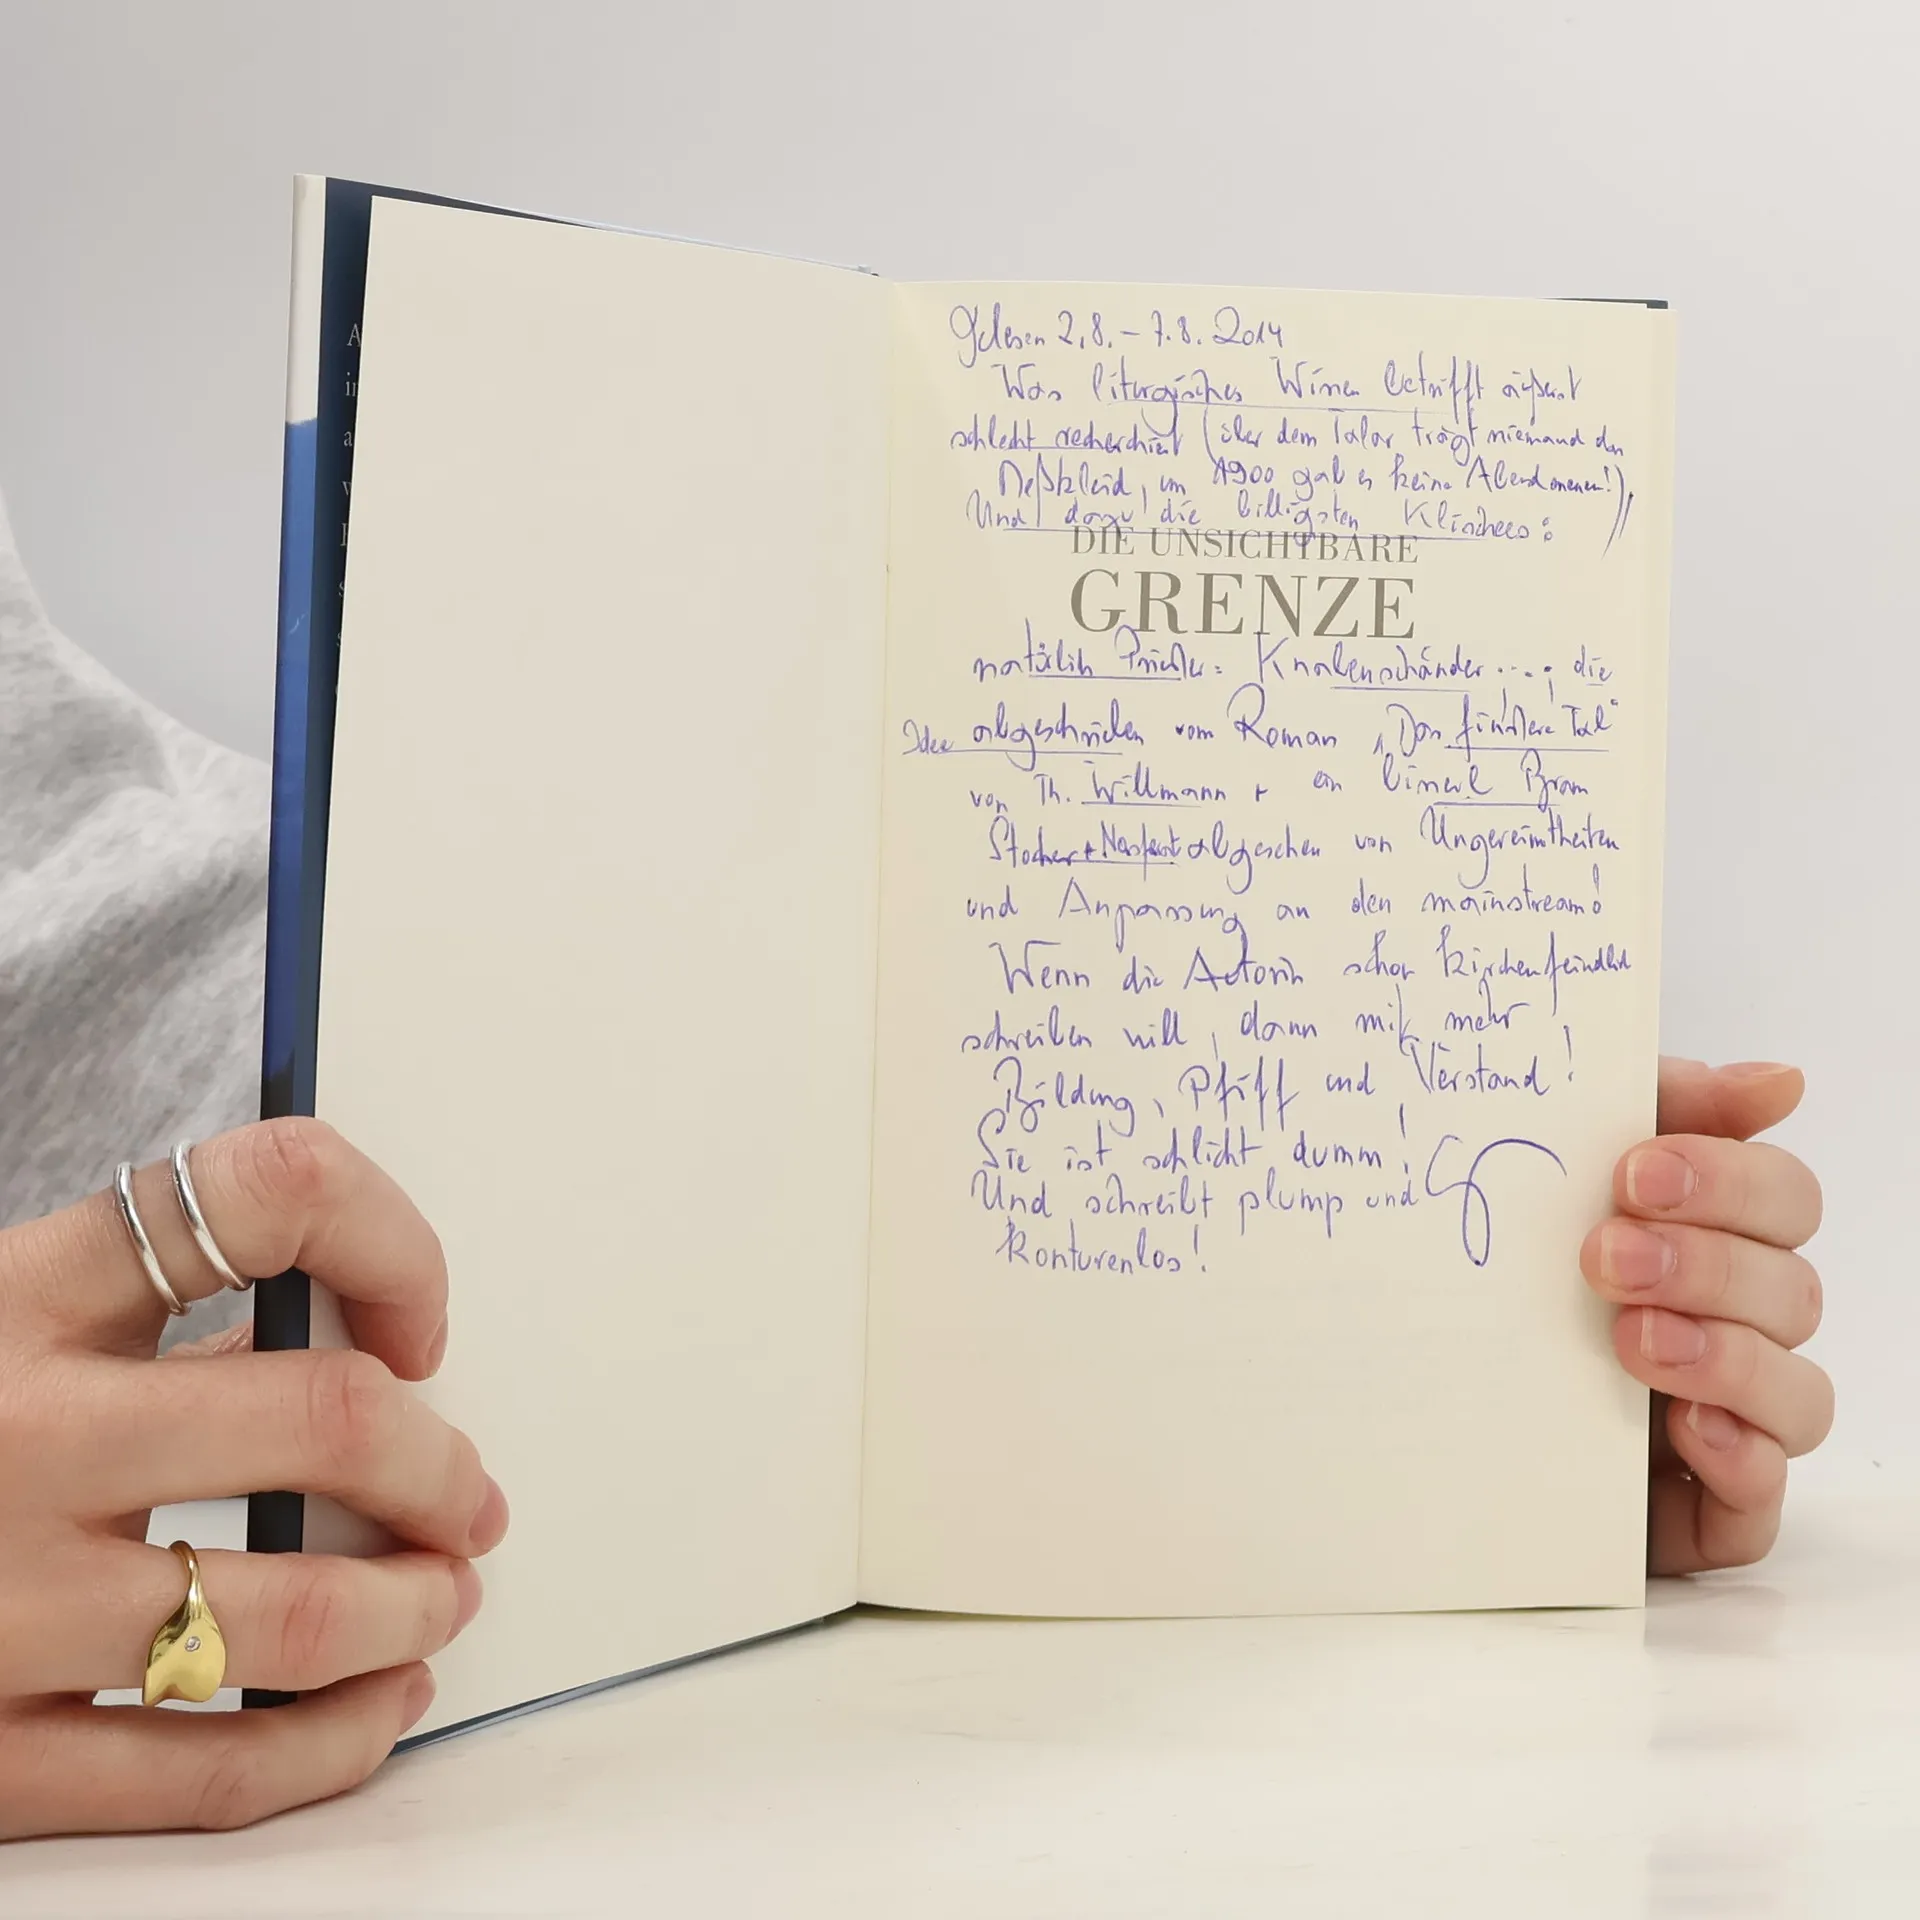 Gelesen 2.8. – 7.8. 2014
Was liturgisches Wissen betrifft äußerst
schlecht recherchiert (über dem Talar trägt niemand das
Meßkleid, um 1900 gab es keine Abendmessen!),
Und dazu die billigsten Klischees:
DIE UNSICHTBARE
GRENZE
natürlich Priester = Knabenschänder ....; die
Idee abgeschrieben vom Roman „Das finstere Tal"
von Th. Willmann + ein bisserl Bram
Stocker + abgesehen von Ungereimtheiten
und Anpassung an den mainstream!
Wenn die Autorin schon kirchenfeindlich
schreiben will, dann mit mehr
Bildung, Pfiff und Verstand!
Sie ist schlicht dumm!
Und schreibt plump und
konturenlos!
A
in
a